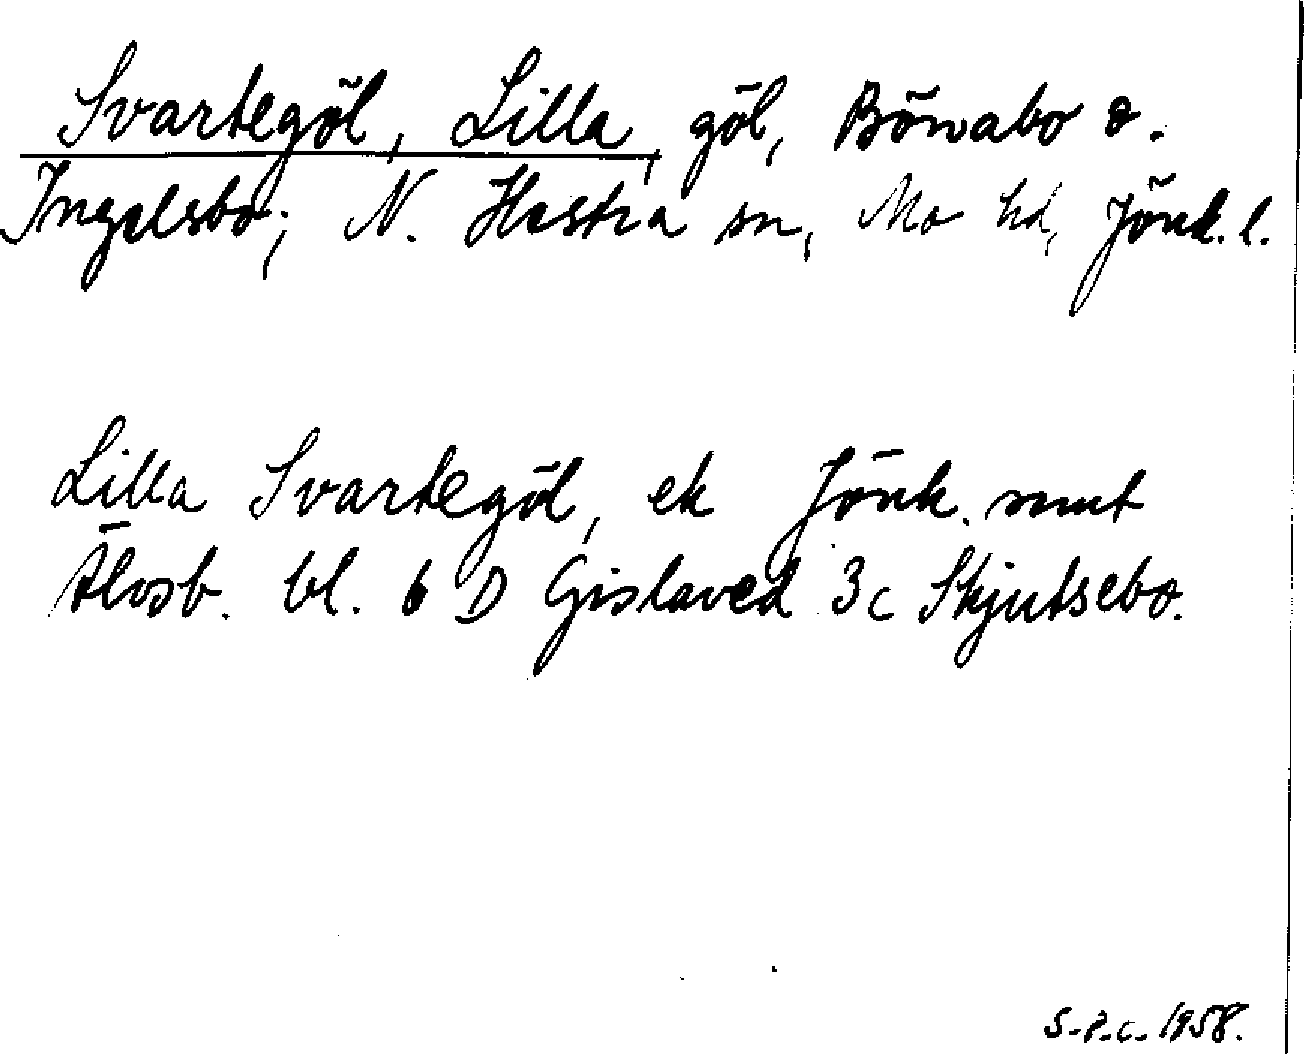 Svartegöl, Lilla, göl, Bönabo o.
Ingelsbo; N. Hestra sn, Mo hd, Jönk. l.
Lilla Svartegöl, ek Jönk. samt
Älvsb. bl. 6 D Gislaved 3c Skjutsebo.
S-P.C. 1958.